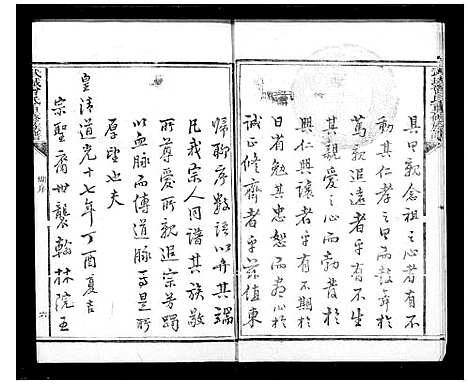 具甲親念祖之心者有不
動其仁孝之思而敦年於
篤親追遠者乎有不生
其親愛之心而勃發於
興仁興讓者乎有不期於
日省勉其忠恕而盡心於
誠正修齊者乎茲值東
歸聊序數語以弁其端
凡我宗人同譜其族敬
所尊愛所親追宗芳躅
以血脉而傳道脉焉是所
厚望也夫
皇清道光十七年丁酉夏吉
宗聖裔世襲翰林院五
六